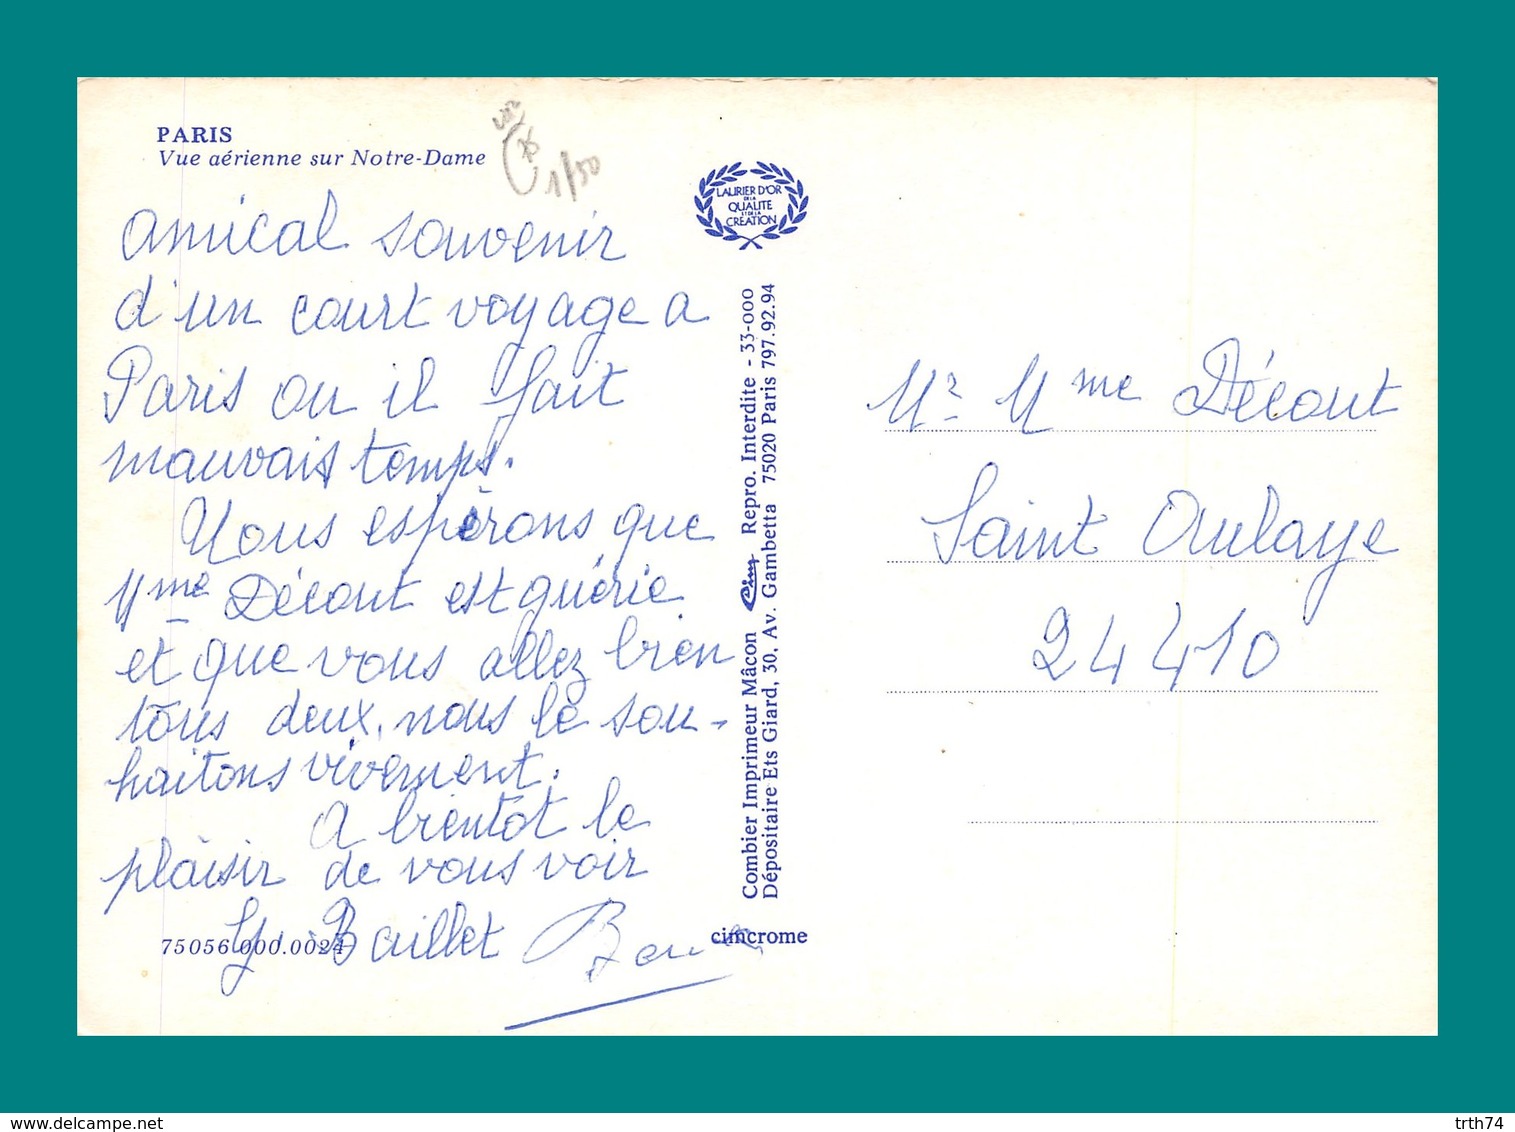 PARIS
Vue aérienne sur Notre-Dame
1/50
LAURIER D'OR
DE LA
QUALITE
ET DE LA
CREATION
amical souvenir
d'un court voyage a
Paris ou il fait
mauvais temps.
Nous espérons que
Mme Décout est guérie
et que vous allez bien
tous deux, nous le sou-
haitons vivement.
A bientôt le
plaisir de vous voir
Baillet
75056 000.0024
Combier Imprimeur Mâcon Cim Repro. Interdite - 33-000
Dépositaire Ets Giard, 30, Av. Gambetta 75020 Paris 797.92.94
cimcrome
Mr Mme Décout
Saint Aulaye
24410
trth74